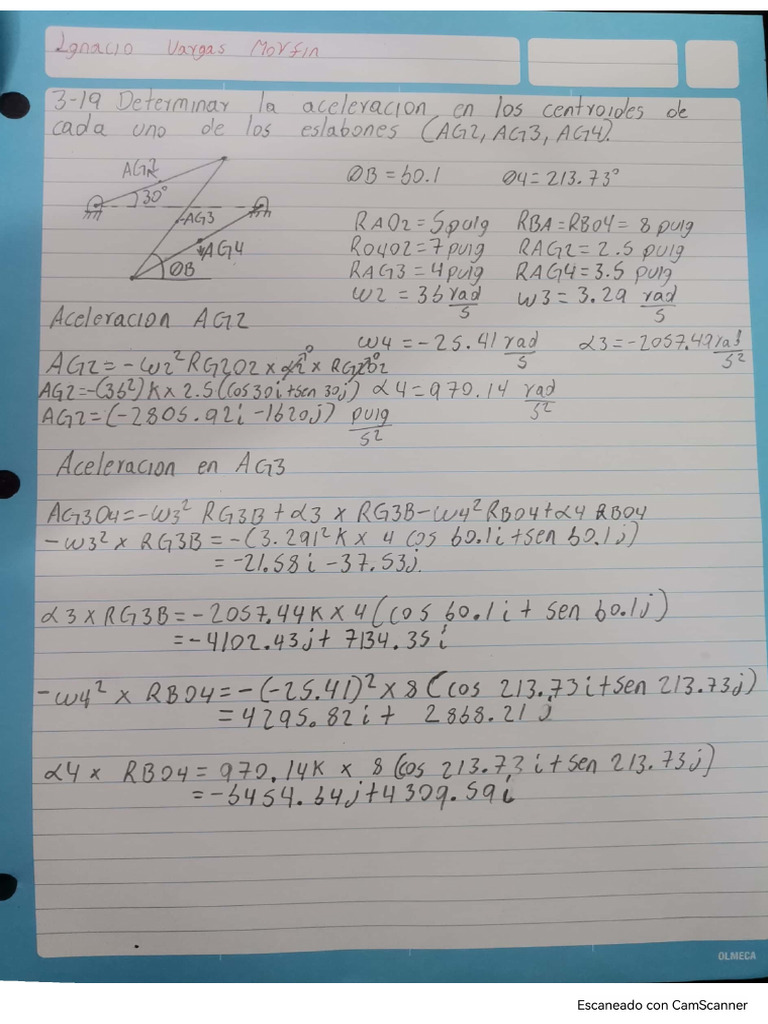 Ignacio Vargas Morfin
3-19 Determinar la aceleracion en los centroides de
cada uno de los eslabones (AG2, AG3, AG4).
AG2
30°
AG3
AG4
ØB
ØB = 60.1 Ø4 = 213.73°
RAO2 = 5 pulg RBA = RBO4 = 8 pulg
RO4O2 = 7 pulg RAG2 = 2.5 pulg
RAG3 = 4 pulg RAG4 = 3.5 pulg
ω2 = 36 rad/s ω3 = 3.29 rad/s
Aceleracion AG2
ω4 = -25.41 rad/s α3 = -2057.49 rad/s²
AG2 = -ω2² RG2O2 × α2 × RG2O2
AG2 = -(36²) K × 2.5 (cos 30i + sen 30j) α4 = 970.14 rad/s²
AG2 = (-2805.92i - 1620j) pulg/s²
Aceleracion en AG3
AG3O4 = -ω3² RG3B + α3 × RG3B - ω4² RBO4 + α4 RBO4
-ω3² × RG3B = -(3.29)² K × 4 cos 60.1i + sen 60.1j)
= -21.58i - 37.53j
α3 × RG3B = -2057.44K × 4 (cos 60.1i + sen 60.1j)
= -4102.43j + 7134.35i
-ω4² × RBO4 = -(-25.41)² × 8 (cos 213.73i + sen 213.73j)
= 4295.82i + 2868.21j
α4 × RBO4 = 970.14K × 8 (cos 213.73i + sen 213.73j)
= -6454.64j + 4309.59i
OLMECA
Escaneado con CamScanner